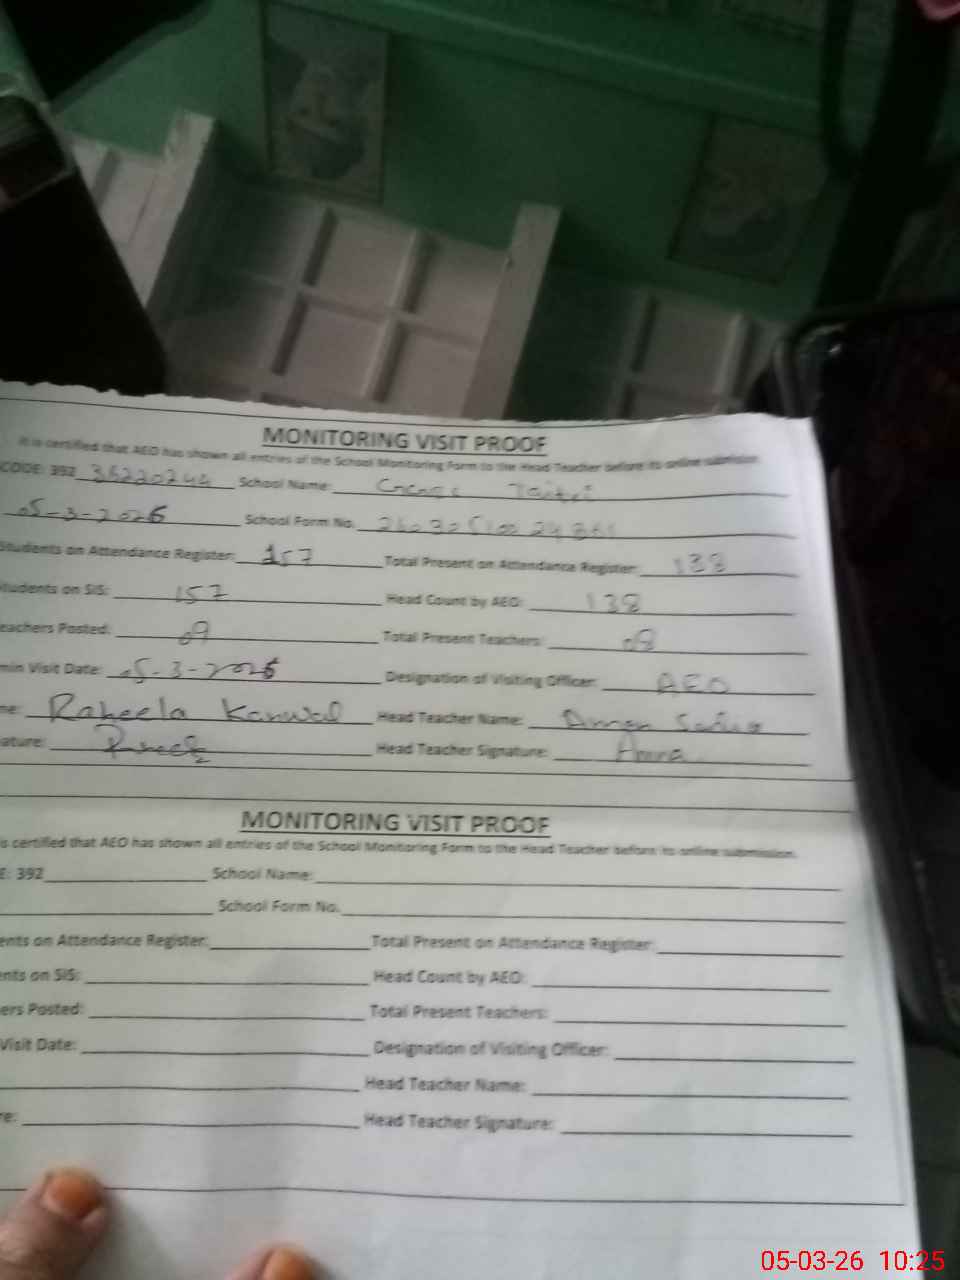 MONITORING VISIT PROOF
It is certified that AEO has shown all entries of the School Monitoring Form to the Head Teacher before its online submission.
CODE: 392 35220244 School Name:
05-3-2026 School Form No.
Students on Attendance Register: 157 Total Present on Attendance Register: 138
tudents on SIS: 157 Head Count by AEO: 138
eachers Posted: 09 Total Present Teachers: 08
min Visit Date: 05-3-2026 Designation of Visiting Officer: AEO
me: Raheela Kanwal Head Teacher Name:
ature: Head Teacher Signature: Amna
MONITORING VISIT PROOF
is certified that AEO has shown all entries of the School Monitoring Form to the Head Teacher before its online submission.
E: 392 School Name:
School Form No.
ents on Attendance Register: Total Present on Attendance Register:
ents on SIS: Head Count by AEO:
ers Posted: Total Present Teachers:
Visit Date: Designation of Visiting Officer:
Head Teacher Name:
re: Head Teacher Signature:
05-03-26 10:25